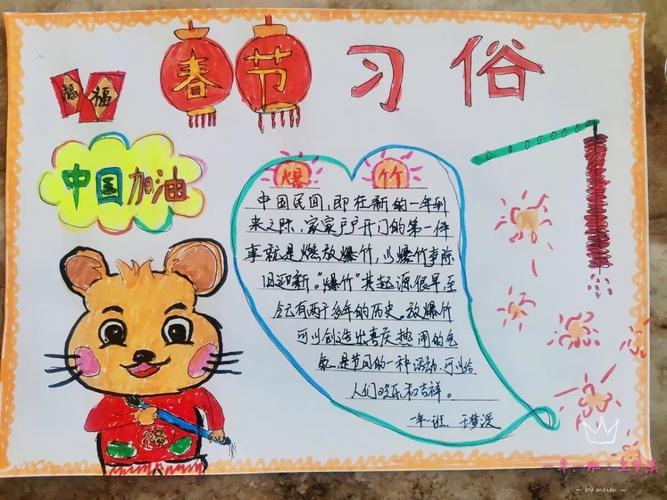 春节习俗
福 福
中国加油
爆竹
中国民间,即在新的一年到
来之际,家家户户开门的第一件
事就是燃放爆竹,以爆竹声除
旧迎新。"爆竹"其起源很早至
今有两千多年的历史。放爆竹
可以创造出喜庆热闹的气
氛,是节日的一种活动,可以给
人们欢乐和吉祥。
一年一班
福
- by meitu -